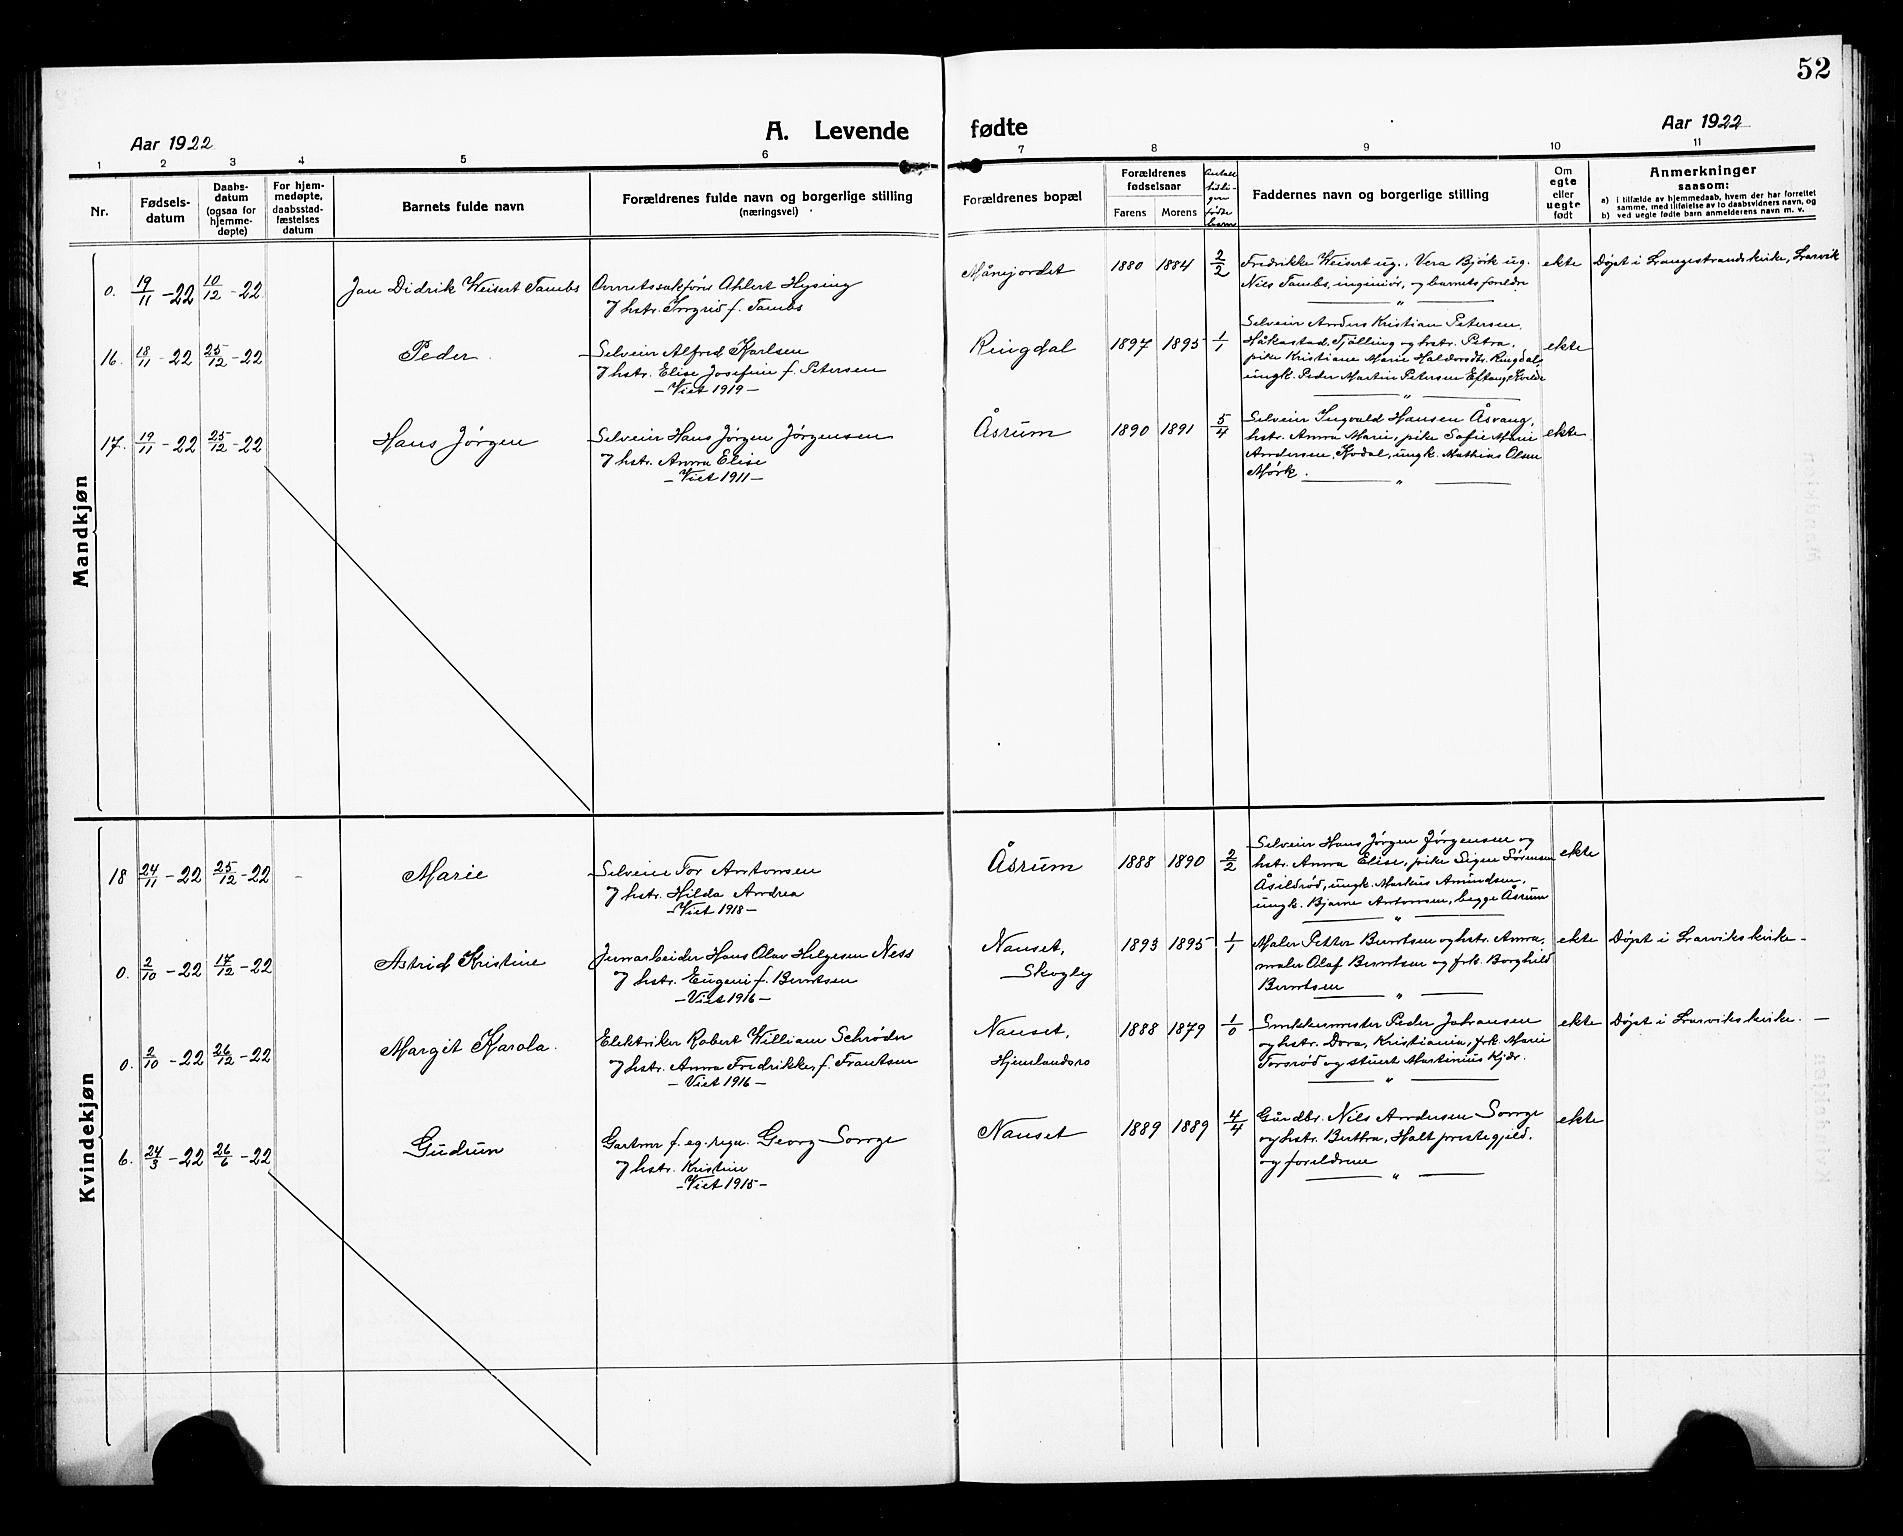 52
Aar 1922
A. Levende fødte
Aar 1922
1 2 3 4 5 6 7 8 9 10 11
Nr.
Fødsels-
datum
Daabs-
datum
(ogsaa for
hjemme-
døpte)
For hjem-
medøpte,
daabsstad-
fæstelses
datum
Barnets fulde navn
Forældrenes fulde navn og borgerlige stilling
(næringsvei)
Forældrenes bopæl
Forældrenes
fødselsaar
Farens Morens
Antall
tidli-
gere
fødte
barn
Faddernes navn og borgerlige stilling
Om
egte
eller
uegte
født
Anmerkninger
saasom:
a) i tilfælde av hjemmedaab, hvem der har forrettet
samme, med tilføielse av to daabsvidners navn, og
b) ved uegte fødte barn anmelderens navn m. v.
Mandkjøn
0. 19/11 - 22 10/12 - 22
Jan Didrik Weisert Tambs
Overretssakfører Ahlert Hysing
& hstr. Ingrid f. Tambs
Månejordet
1880 1884 2/2
Fredrikke Weisert ug., Vera Bjørk ug.
Nils Tambs, ingeniør, og barnets foreldre
— „ —
ekte
Døpt i Langestrands kirke, Larvik
16. 18/11 - 22 25/12 - 22
Peder
Selveier Alfred Karlsen
& hstr. Elise Josefine f. Petersen
- Viet 1919 -
Ringdal
1897 1895 1/1
Selveier Anders Kristian Petersen,
Håkastad, Tjølling og hstr. Petra,
pike Kristiane Marie Haldorsdtr. Ringdal,
ungk. Peder Martin Petersen Eftang, Kvelde
— „ —
ekte
17. 19/11 - 22 25/12 - 22
Hans Jørgen
Selveier Hans Jørgen Jørgensen
& hstr. Anna Elise
- Viet 1911 -
Åsrum
1890 1891 5/4
Selveier Ingvald Hansen Åsvang,
hstr. Anna Marie, pike Sofie Marie
Andersen, Kodal, ungk. Mathias Olsen
Mørk. — „ —
ekte
Kvindekjøn
18 24/11 - 22 25/12 - 22 -
Marie
Selveier Tor Antonsen
& hstr. Hilda Andrea
- Viet 1918 -
Åsrum
1888 1890 2/2
Selveier Hans Jørgen Jørgensen og
hstr. Anna Elise, pike Signe Sørensen
Åsildrød, ungk. Markus Amundsen,
ungk. Bjarne Antonsen, begge Åsrum
— „ —
ekte
0. 2/10 - 22 17/12 - 22
Astrid Kristine
Jernarbeider Hans Olav Helgesen Ness
& hstr. Eugeni f. Berntsen
- Viet 1916 -
Nanset,
Skogly
1893 1895 1/1
Maler Petter Berntsen og hstr. Anna,
maler Olaf Berntsen og frk. Borghild
Berntsen — „ —
ekte
Døpt i Larviks kirke -
0. 2/10 - 22 26/12 - 22
Margit Karola.
Elektriker Robert William Schrøder
& hstr. Anna Fredrikke, f. Frantsen
- Viet 1916 -
Nanset,
Hjemlandsro
1888 1879 1/0
Snekkermester Peder Johansen
og hstr. Dora, Kristiania, frk. Marie
Torsrød og stuert Martinius Kjær.
— „ —
ekte
Døpt i Larviks kirke. —
6. 24/3 - 22 26/6 - 22
Gudrun
Gartner f. eg. regn. Georg Sorrge
& hstr. Kristine
- Viet 1915 -
Nanset
1889 1889 4/4
Gårdbr. Nils Andersen Sorrge
og hstr. Berthea, Holt prestegjeld.
og foreldrene
— „ —
ekte